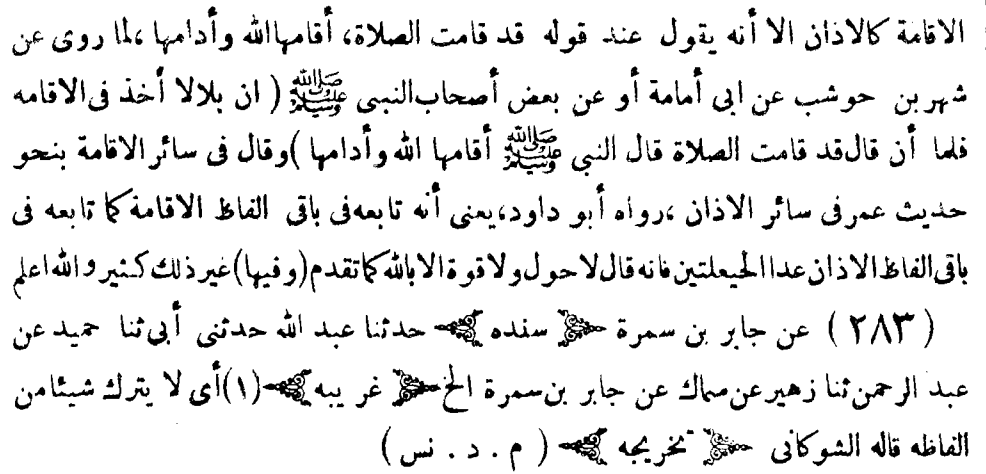 الاقامة كالاذان الا أنه يقول عند قوله قد قامت الصلاة، أقامها الله وأدامها ،لما روى عن
شهر بن حوشب عن ابى أمامة أو عن بعض أصحاب النبى ﷺ ( ان بلالا أخذ فى الاقامه
فلما أن قال قد قامت الصلاة قال النبى ﷺ أقامها الله وأدامها )وقال فى سائر الاقامة بنحو
حديث عمر فى سائر الاذان ،رواه أبو داود،يعنى أنه تابعه فى باقى الفاظ الاقامة كما تابعه فى
باقى الفاظ الاذان عدا الحيعلتين فانه قال لا حول ولا قوة الا بالله كما تقدم (وفيها) غير ذلك كثير والله اعلم
( ٢٨٣ ) عن جابر بن سمرة ﴿ سنده ﴾ حدثنا عبد الله حدثنى أبى ثنا حميد عن
عبد الرحمن ثنا زهير عن سماك عن جابر بن سمرة الخ ﴿ غريبه ﴾ (١) أى لا يترك شيئا من
الفاظه قاله الشوكانى ﴿ تخريجه ﴾ ( م . د . نس )